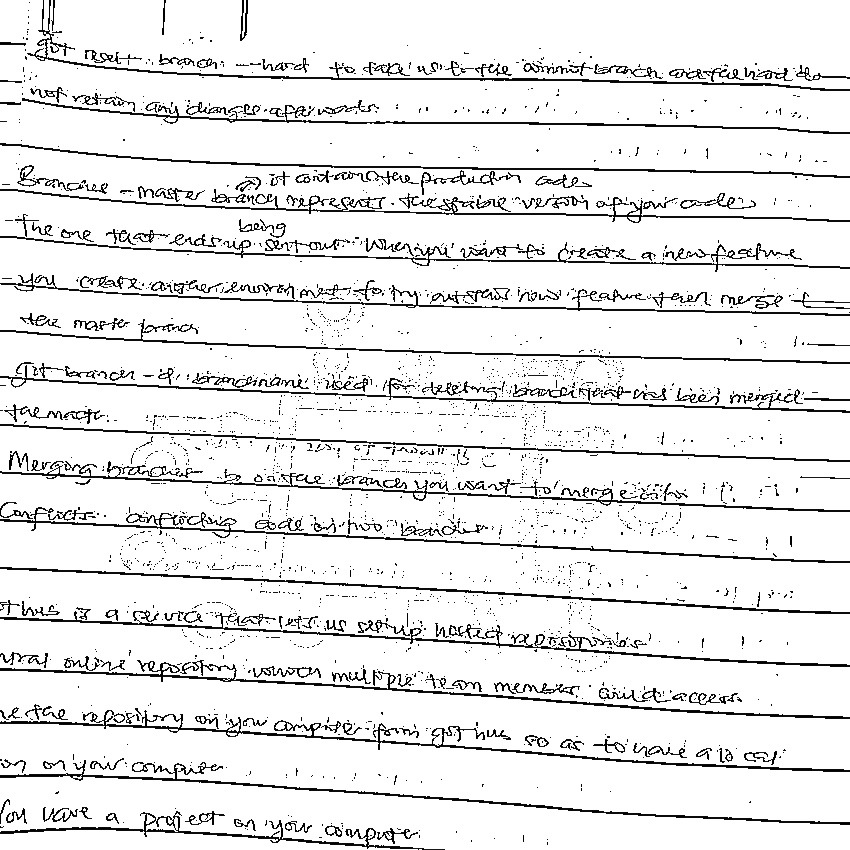 git reset branch --hard to take us to the commit branch and the hard do
not retain any changes afterwards.
it contains the production code
Branches - master branch represents the stable version of your code
being
The one that ends up sent out when you want to create a new feature
you create another environment to try out this new feature then merge
the master branch
git branch -d branchname used for deleting branch that has been merged
the master.
Merging branches be on the branch you want to merge
Conflicts conflicting code on two branches
thub is a service that lets us setup hosted repositories
ntral online repository which multiple team members could access
ne the repository on your computer from git hub so as to have a local
on on your computer
You have a project on your computer